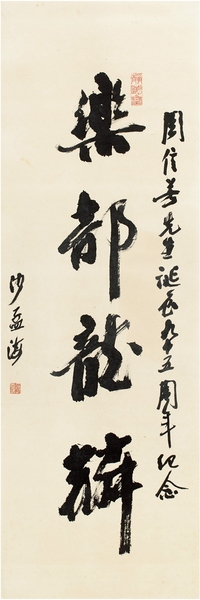 周信芳先生誕辰九十五周年紀念
樂部龍
沙孟海